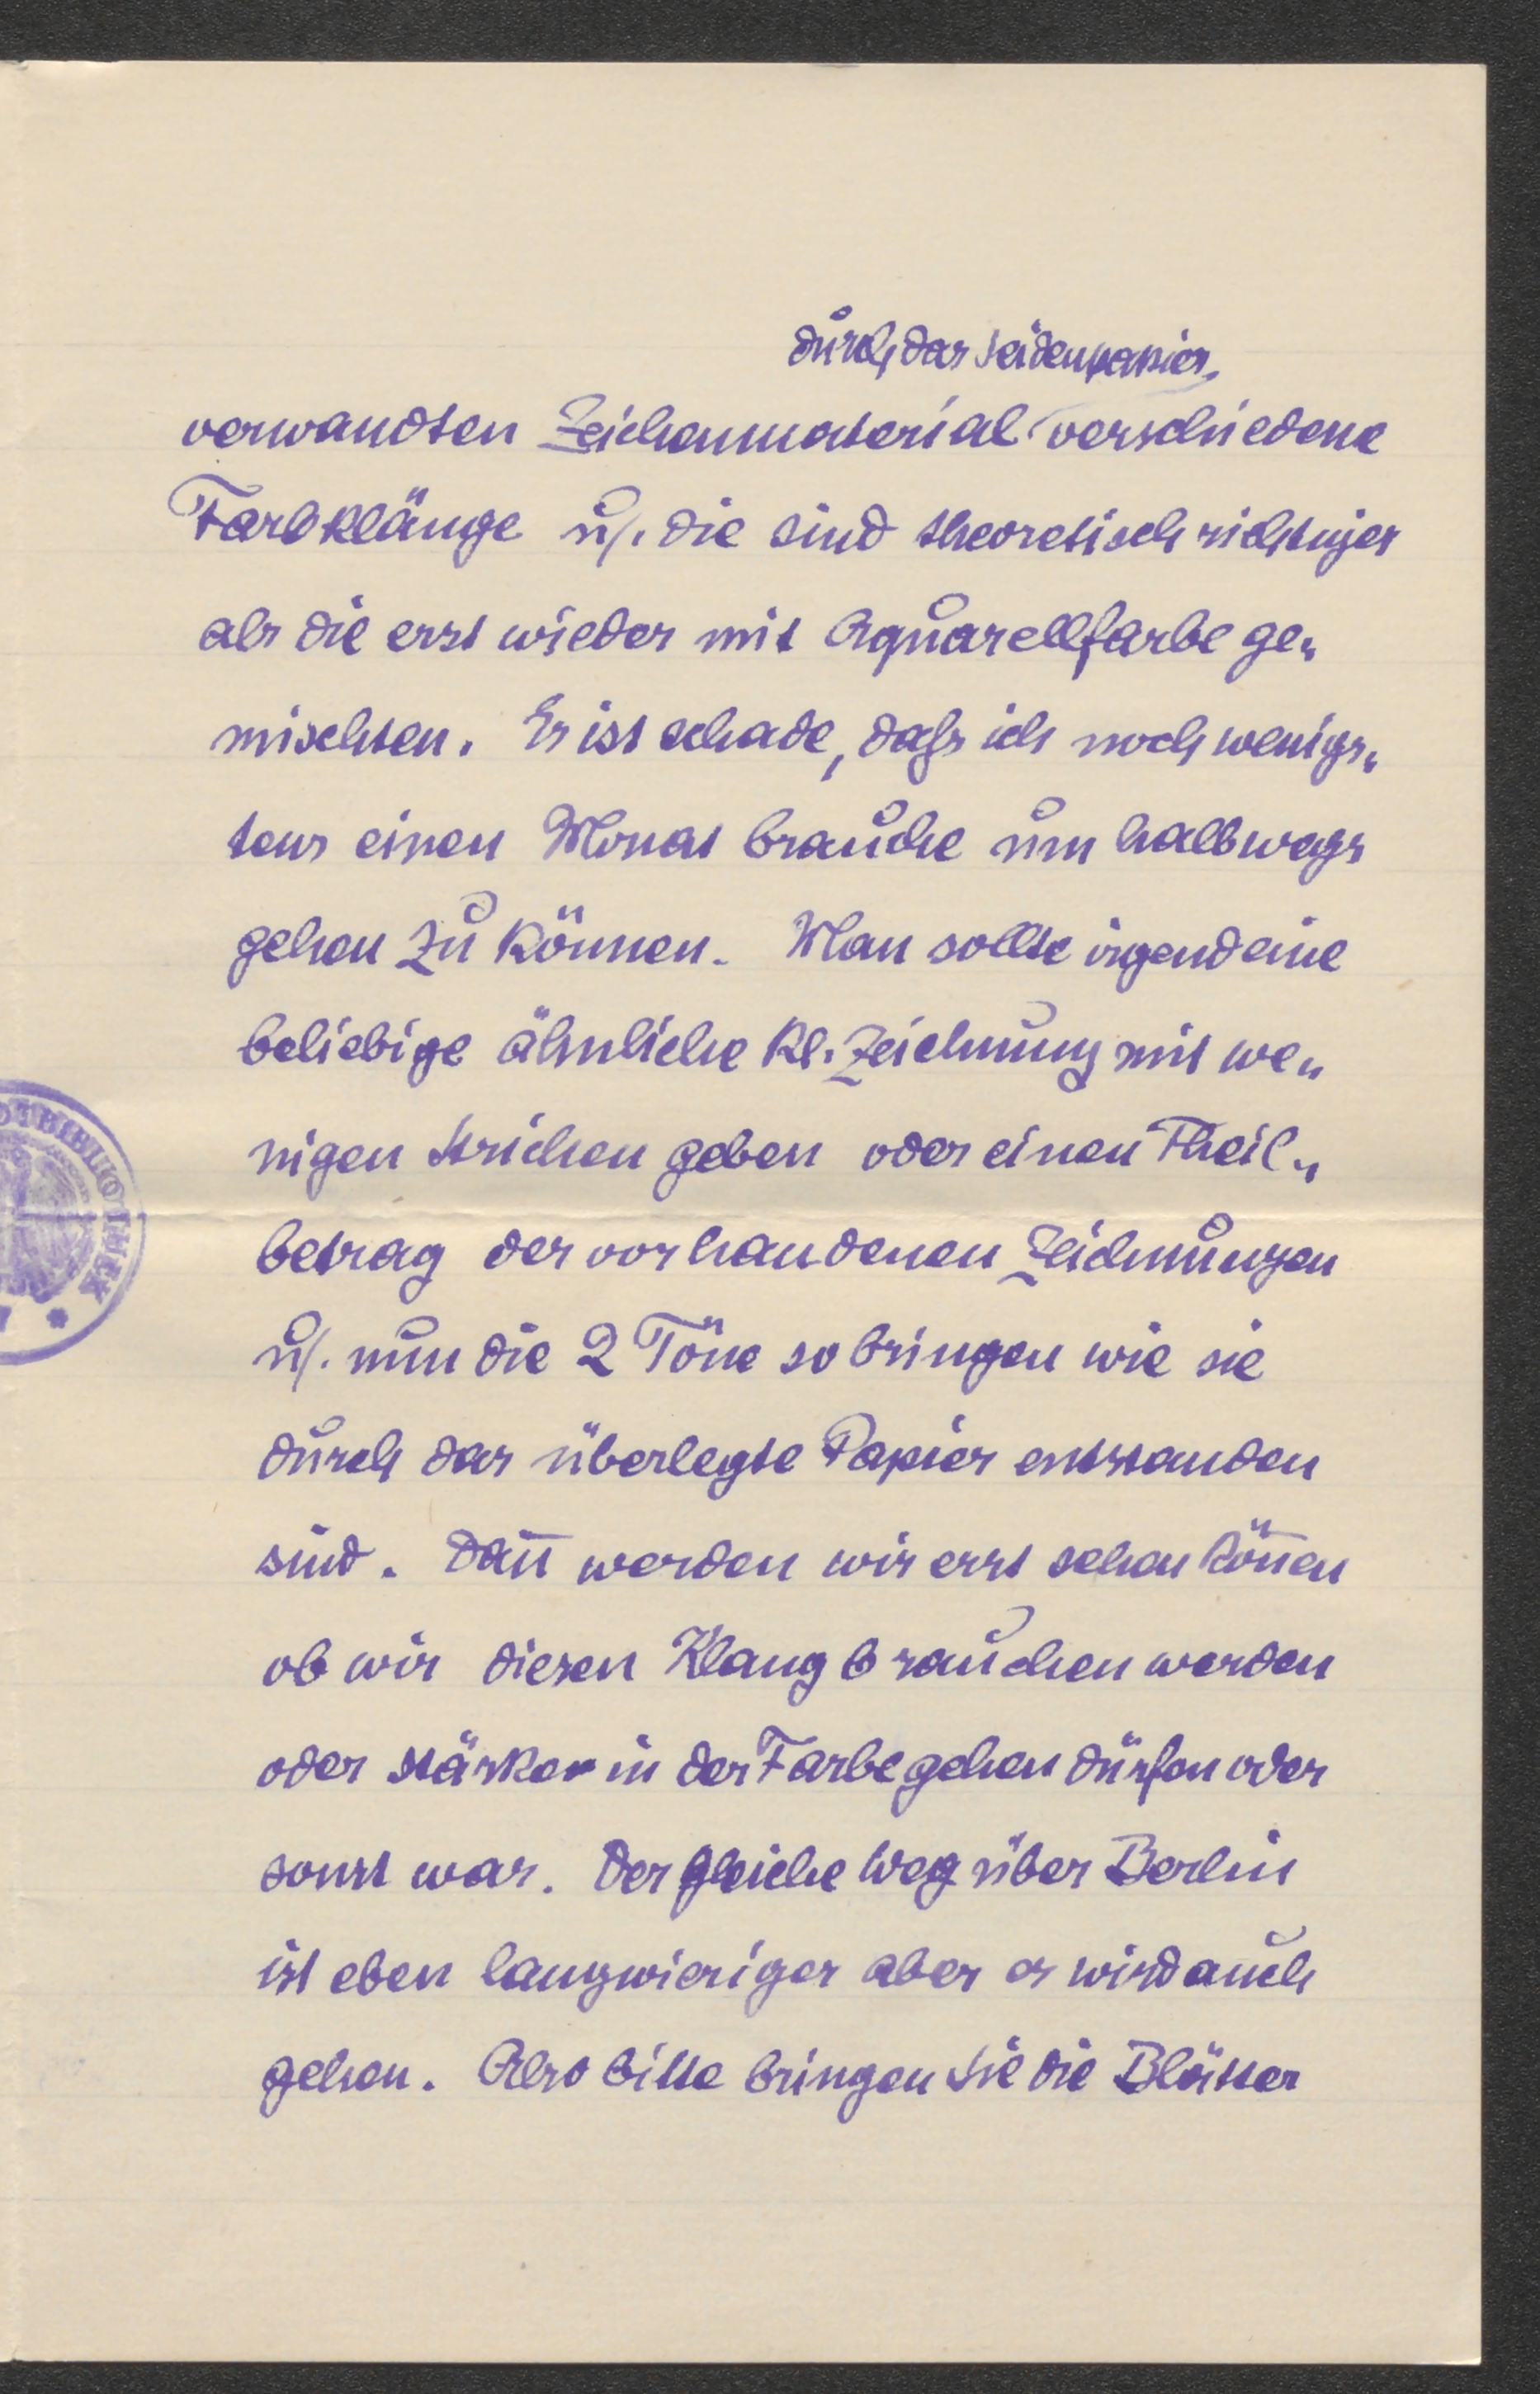 durch das Seidenpapier
verwandten Zeichenmaterial verschiedene
Farbklänge u/. die sind theoretisch richtiger
als die erst wieder mit Aquarellfarbe ge„
mischten. Es ist schade, dass ich noch wenigs„
tens einen Monat brauche um halbwegs
gehen zu können. Man sollte irgend eine
beliebige ähnliche kl. Zeichnung mit we„
nigen Strichen geben oder einen Theil„
betrag der vorhandenen Zeichnungen
u/. nun die 2 Töne so bringen wie sie
durch das überlegte Papier entstanden
sind. Dan̄ werden wir erst sehen kön̄en
ob wir diesen Klang brauchen werden
oder stärker in der Farbe gehen dürfen oder
sonst was. Der gleiche Weg über Berlin
ist eben langwieriger aber es wird auch
gehen. Also bitte bringen Sie die Blätter
BIBLIOTHEK